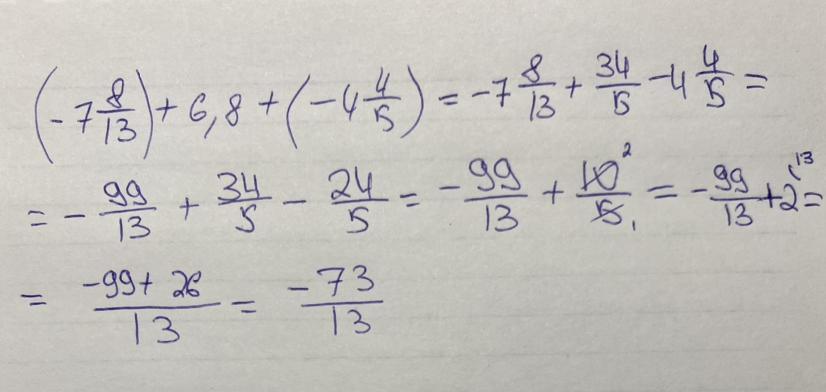 (-7 8/13) + 6,8 + (-4 4/5) = -7 8/13 + 34/5 - 4 4/5 =
= - 99/13 + 34/5 - 24/5 = - 99/13 + 10²/5₁ = - 99/13 + 2⁽¹³ =
= (-99 + 26)/13 = -73/13